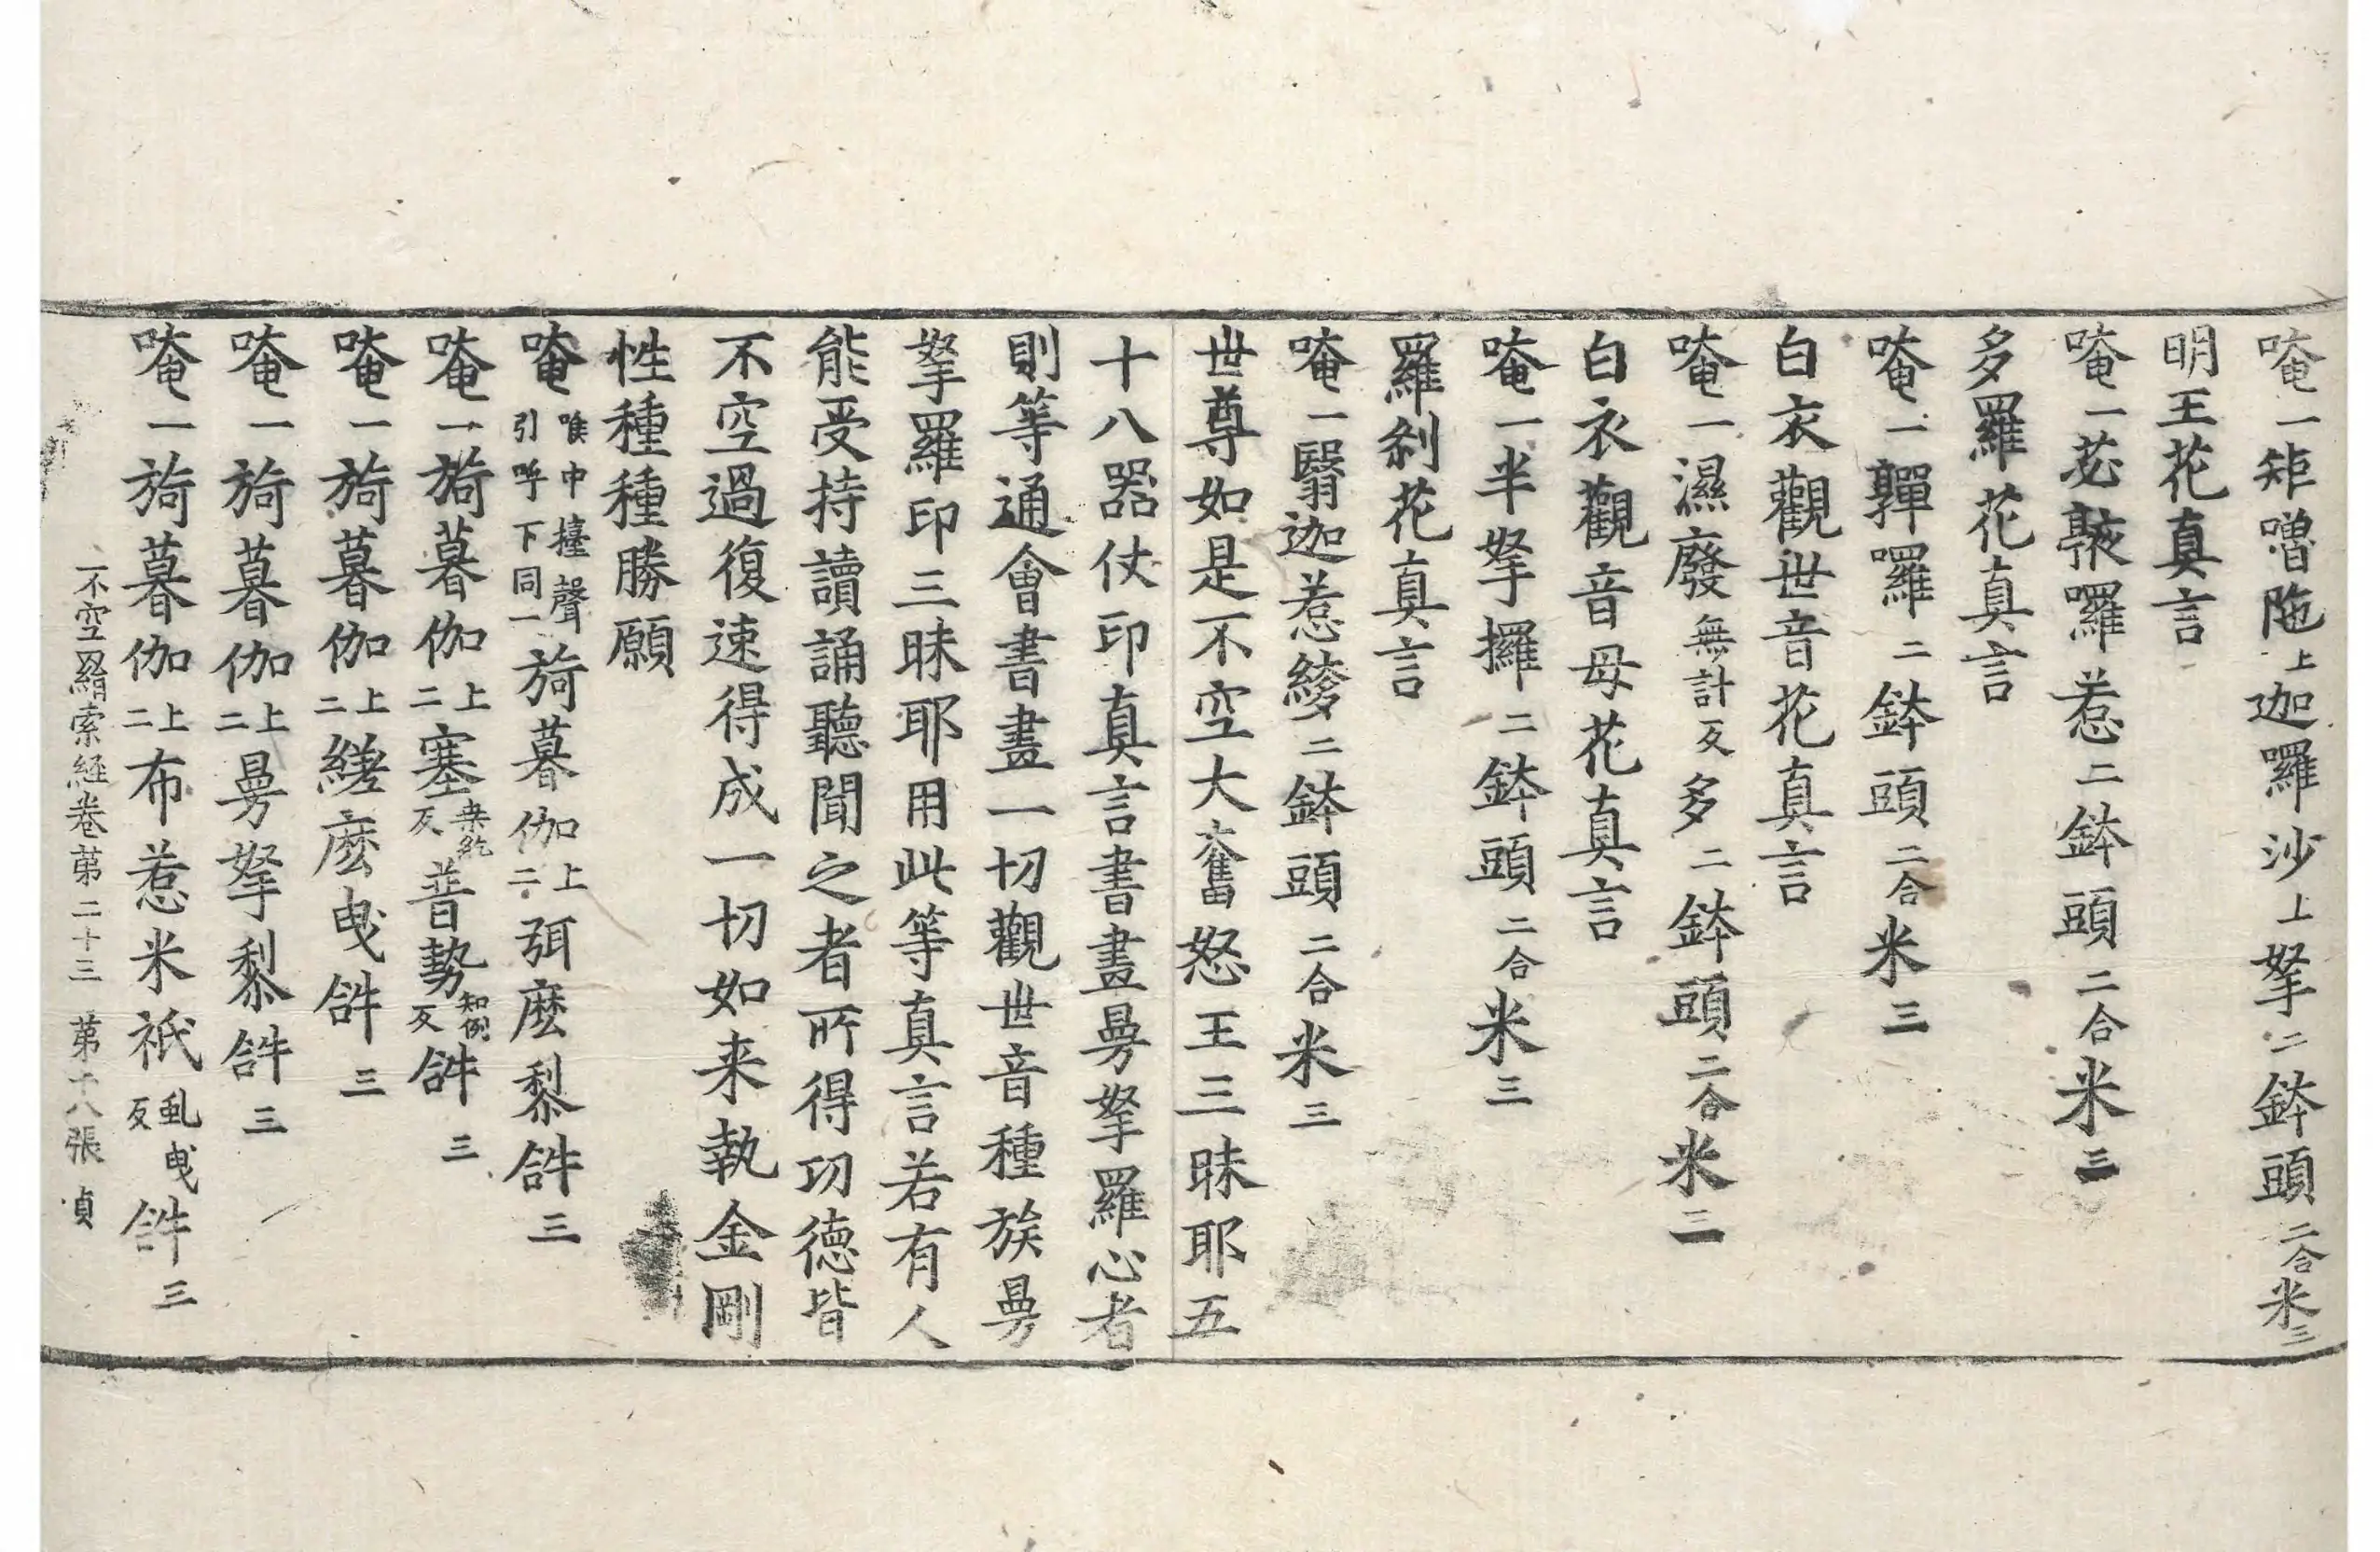 唵一矩嚕陁上迦囉沙上拏二鉢頭二合米三
明王花真言
唵一苾㗚囉惹二鉢頭二合米三
多羅花真言
唵一嚲囉二鉢頭二合米三
白衣觀世音花真言
唵一濕廢無計反多二鉢頭二合米三
白衣觀音母花真言
唵一半拏攞二鉢頭二合米三
羅剎花真言
唵一翳迦惹緩二鉢頭二合米三
世尊如是不空大奮怒王三昧耶五
十八器仗印真言書畫曼拏羅心者
則等通會書畫一切觀世音種族曼
拏羅印三昧耶用此等真言若有人
能受持讀誦聽聞之者所得功德皆
不空過復速得成一切如来執金剛
性種種勝願
唵喉中擡聲引呼下同一旖暮伽上二弭麽黎𤙖三
唵一旖暮伽上二塞桒紇反普勢知例反𤙖三
唵一旖暮伽上二縒麽曳𤙖三
唵一旖暮伽上二曼拏黎𤙖三
唵一旖暮伽上二布惹米祇虬曳反𤙖三
不空羂索経卷苐二十三 苐十八張 貞